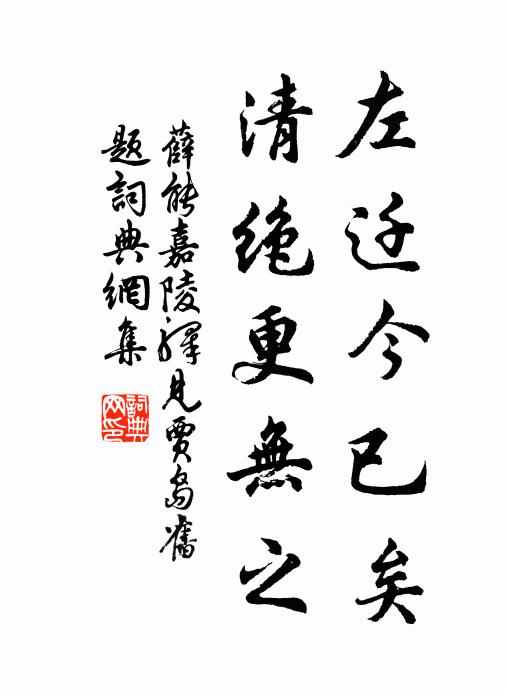 左迁今已矣
清绝更無之
薛能嘉陵驛見賈島舊
題詞典網集
詞典網印